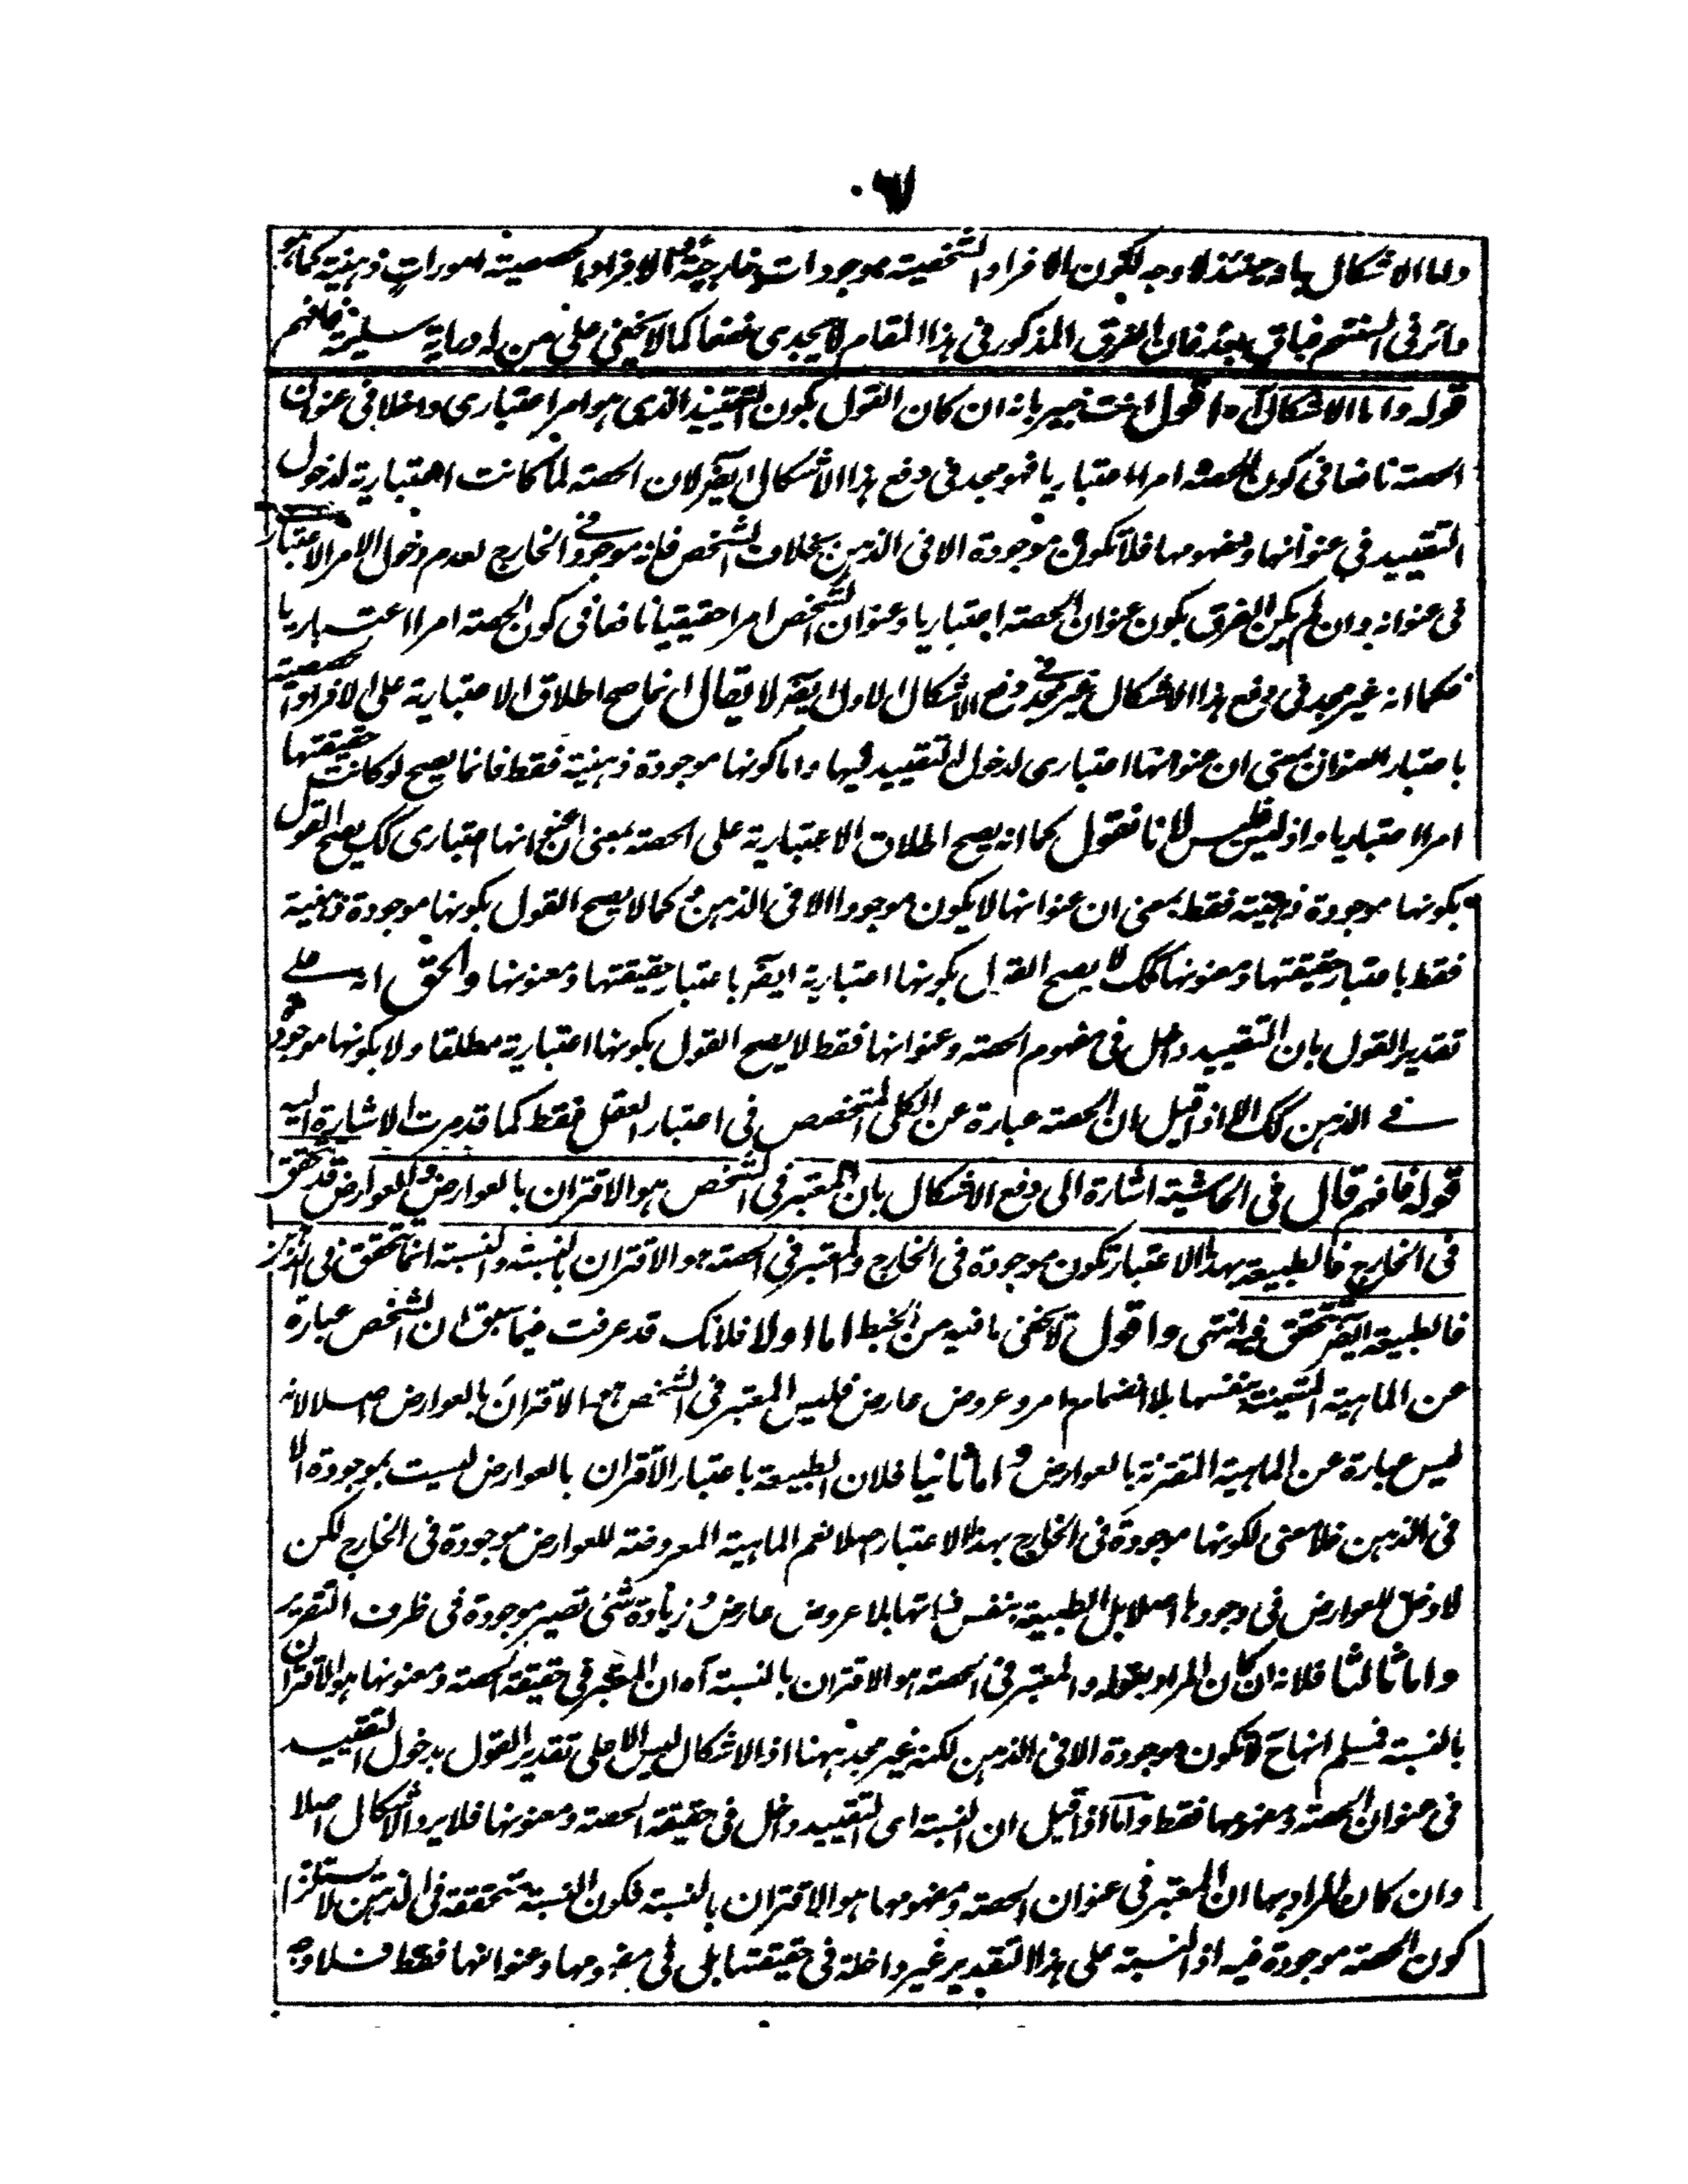 واما الاشكال بانه حينئذ لا وجه لكون الافراد الشخصية موجودات خارجية والافراد الحصصية امورات ذهنية كما هو
فباق بعد فان الفرق المذكور فى هذا المقام لا يجدى نفعا كما لا يخفى على من له دراية سليمة فافهم
قوله واما الاشكال آه اقول انت خبير بانه ان كان القول بكون التقييد الذى هو امر اعتبارى داخلا فى عنوان
الحصة نافعا فى كون الحصة امرا اعتباريا فهو مجد فى دفع هذا الاشكال ايضا لان الحصة لما كانت اعتبارية لدخول
التقييد فى عنوانها ومفهومها فلا تكون موجودة الا فى الذهن بخلاف الشخص فانه موجود فى الخارج لعدم دخول الامر الاعتبارى
فى عنوانه وان لم يكن الفرق بكون عنوان الحصة اعتباريا وعنوان الشخص امرا حقيقيا نافعا فى كون الحصة امرا اعتباريا
فكما انه غير مجد فى دفع هذا الاشكال غير مجد فى دفع الاشكال الاول ايضا لا يقال انما صح اطلاق الاعتبارية على الافراد الحصصية
باعتبار العنوان بمعنى ان عنوانها اعتبارى لدخول التقييد فيها واما كونها موجودة ذهنية فقط فانما يصح لو كانت حقيقتها
امرا اعتباريا واذ ليس فليس لانا نقول كما انه يصح اطلاق الاعتبارية على الحصة بمعنى ان عنوانها اعتبارى كك يصح القول
بكونها موجودة ذهنية فقط بمعنى ان عنوانها لا يكون موجودا الا فى الذهن وكما لا يصح القول بكونها موجودة ذهنية
فقط باعتبار حقيقتها ومعنونها كك لا يصح القول بكونها اعتبارية ايضا باعتبار حقيقتها ومعنونها والحق انه على
تقدير القول بان التقييد داخل فى مفهوم الحصة وعنوانها فقط لا يصح القول بكونها اعتبارية مطلقا ولا بكونها موجودة
فى الذهن كك الا اذا قيل ان الحصة عبارة عن الكلى المتخصص فى اعتبار العقل فقط كما قد مرت الاشارة اليه
قوله فافهم قال فى الحاشية اشارة الى دفع الاشكال بان المعتبر فى الشخص هو الاقتران بالعوارض والعوارض قد تحقق
فى الخارج فالطبيعة بهذا الاعتبار تكون موجودة فى الخارج والمعتبر فى الحصة هو الاقتران بالنسبة والنسبة انما تتحقق فى الذهن
فالطبيعة ايضا تتحقق فيه انتهى واقول لا يخفى ما فيه من الخبط اما اولا فلانك قد عرفت فيما سبق ان الشخص عبارة
عن الماهية المتعينة بنفسها بلا انضمام امر وعروض عارض فليس المعتبر فى الشخص هو الاقتران بالعوارض اصلا لانه
ليس عبارة عن الماهية المقترنة بالعوارض واما ثانيا فلان الطبيعة باعتبار الاقتران بالعوارض ليست بموجودة الا
فى الذهن فلا معنى لكونها موجودة فى الخارج بهذا الاعتبار اصلا نعم الماهية المعروضة للعوارض موجودة فى الخارج لكن
لا دخل للعوارض فى وجودها اصلا بل الطبيعة بنفس ذاتها بلا عروض عارض وزيادة شئ تصير موجودة فى ظرف التقرير
واما ثالثا فلانه ان كان المراد بقوله والمعتبر فى الحصة هو الاقتران بالنسبة آه ان المعتبر فى حقيقة الحصة ومعنونها هو الاقتران
بالنسبة فمسلم انها ح لا تكون موجودة الا فى الذهن لكنه غير مجد ههنا اذ الاشكال ليس الا على تقدير القول بدخول التقييد
فى عنوان الحصة ومفهومها فقط واما اذا قيل ان النسبة اى التقييد داخل فى حقيقة الحصة ومعنونها فلا يرد الاشكال اصلا
وان كان المراد بها ان المعتبر فى عنوان الحصة ومفهومها هو الاقتران بالنسبة فكون النسبة متحققة فى الذهن لا يستلزم
كون الحصة موجودة فيه اذ النسبة على هذا التقدير غير داخلة فى حقيقتها بل فى مفهومها وعنوانها فقط فلا وجه